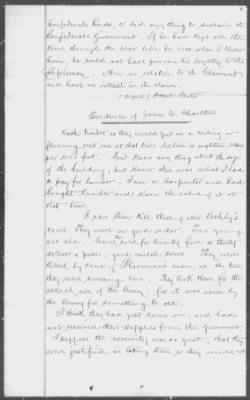 Confederate bonds, or did anything to sustain the
Confederate Government. If he had kept all the
time through the war like he was when I knew
him, he could not have proven his loyalty to the
Confederacy. Am no relation to the Claimant
and have no interest in the claim.
(Signed)
Evidence of James C. Charlton
Such timber as they would put in a ceiling or
flooring, sold me at that time between a eighteen dollars
per 1000 feet. Dont know any thing about the age
of the building, but know this was what I had
to pay for lumber. I am a Carpenter and had
bought lumber and know the value of it at
that time.
I saw them kill three of Mr.
cows. They were in good order, were young
and old. Cows sold for twenty five to thirty
dollars a piece, good milch cows. They were
killed by some of Shermans men, at the time
they were passing here. They took them for the
actual use of the Army, for it was used by
the Army for something to eat.
I think they had just come in, and had
not received their supplies from the government.
I suppose the necessity was so great, that they
were justified in taking them, as they would not